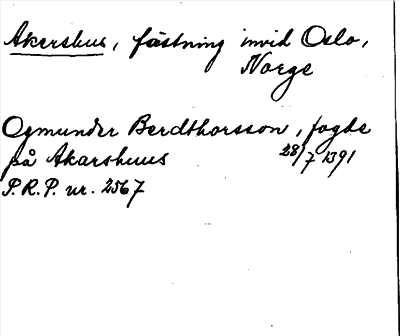 Akershus, fästning invid Oslo,
Norge
Ogmunder Berdthorsson, fogde
på Akarshuus 28/7 1391
P.R.P. nr. 2567